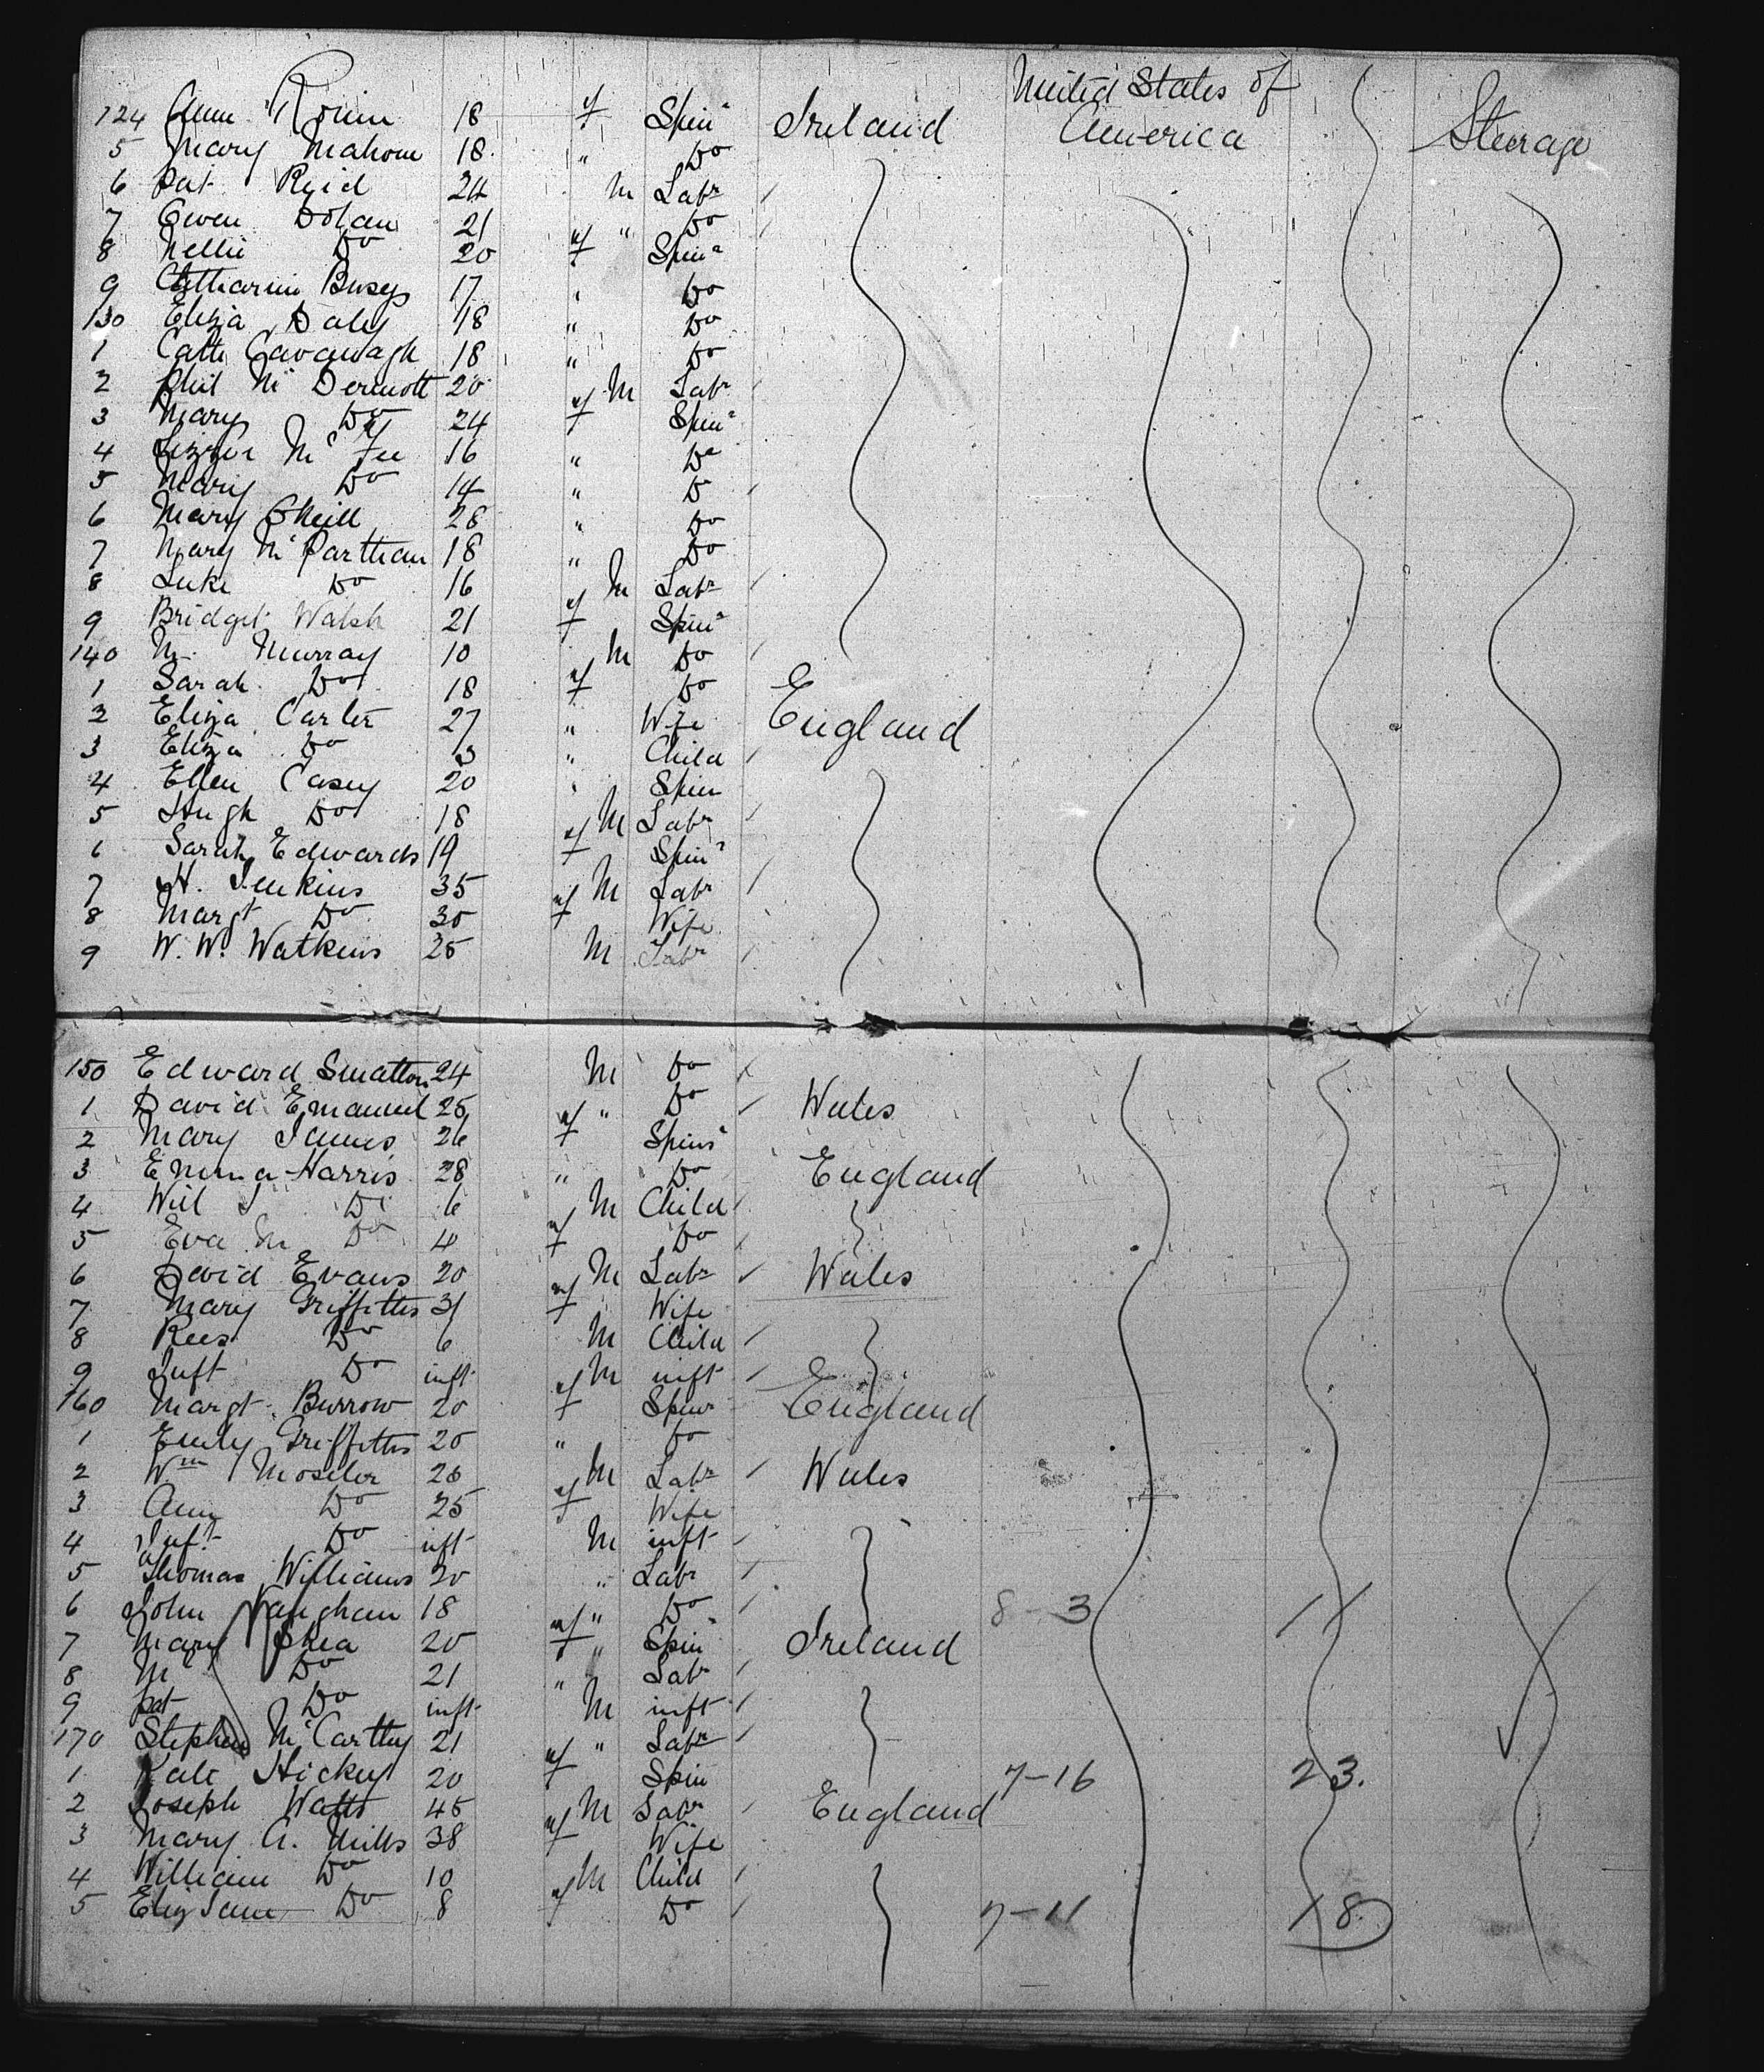 United States of
124 Ann 18 f Spinr Ireland America Steerage
5 Mary Mahone 18 " Do
6 Pat Reid 24 M Labr
7 Owen Dolan 21 " Do
8 Nellie Do 20 f Spinr
9 Catharine 17 " Do
130 Eliza Daley 18 " Do
1 Cath Cavanagh 18 " Do
2 Phil McDermott 20 M Labr
3 Mary Do 24 f Spinr
4 Lizzie McFee 16 " Do
5 Mary Do 14 " Do
6 Mary O'Neill 28 " Do
7 Mary McParthan 18 " Do
8 Luke Do 16 M Labr
9 Bridget Walsh 21 f Spinr
140 M. Murray 10 M Do
1 Sarah Do 18 f Do
2 Eliza Carter 27 " Wife England
3 Eliza Do 3 " Child
4 Ellen Casey 20 " Spin
5 Hugh Do 18 M Labr
6 Sarah Edwards 19 f Spinr
7 H. Jenkins 35 M Labr
8 Margt Do 30 f Wife
9 W. W. Watkins 25 M Labr
150 Edward Smatton 24 M Do
1 David Emanuel 25 " Do Wales
2 Mary James 26 f Spinr
3 Emma Harris 28 " Do England
4 Will J Do 6 M Child
5 Eva M Do 4 f Do
6 David Evans 20 M Labr Wales
7 Mary Griffiths 31 f Wife
8 Rees Do 6 M Child
9 Inft Do inft M inft
160 Margt Burrow 20 f Spinr England
1 Emily Griffiths 20 " Do
2 Wm Mosiler 26 M Labr Wales
3 Amy Do 25 f Wife
4 Inft Do inft M inft
5 Thomas Williams 20 " Labr
6 John Vaughan 18 " Do 8-3 11
7 Mary Shea 20 f " Spin Ireland
8 M Do 21 " Labr
9 Pat Do inft M inft
170 Stephen McCarthy 21 " Labr
1 Kate Hickey 20 f Spin 7-16 23.
2 Joseph Watts 45 M Labr England
3 Mary A. Mills 38 f Wife
4 William Do 10 M Child
5 Eliz Jane Do 8 f Do 7-11 18.